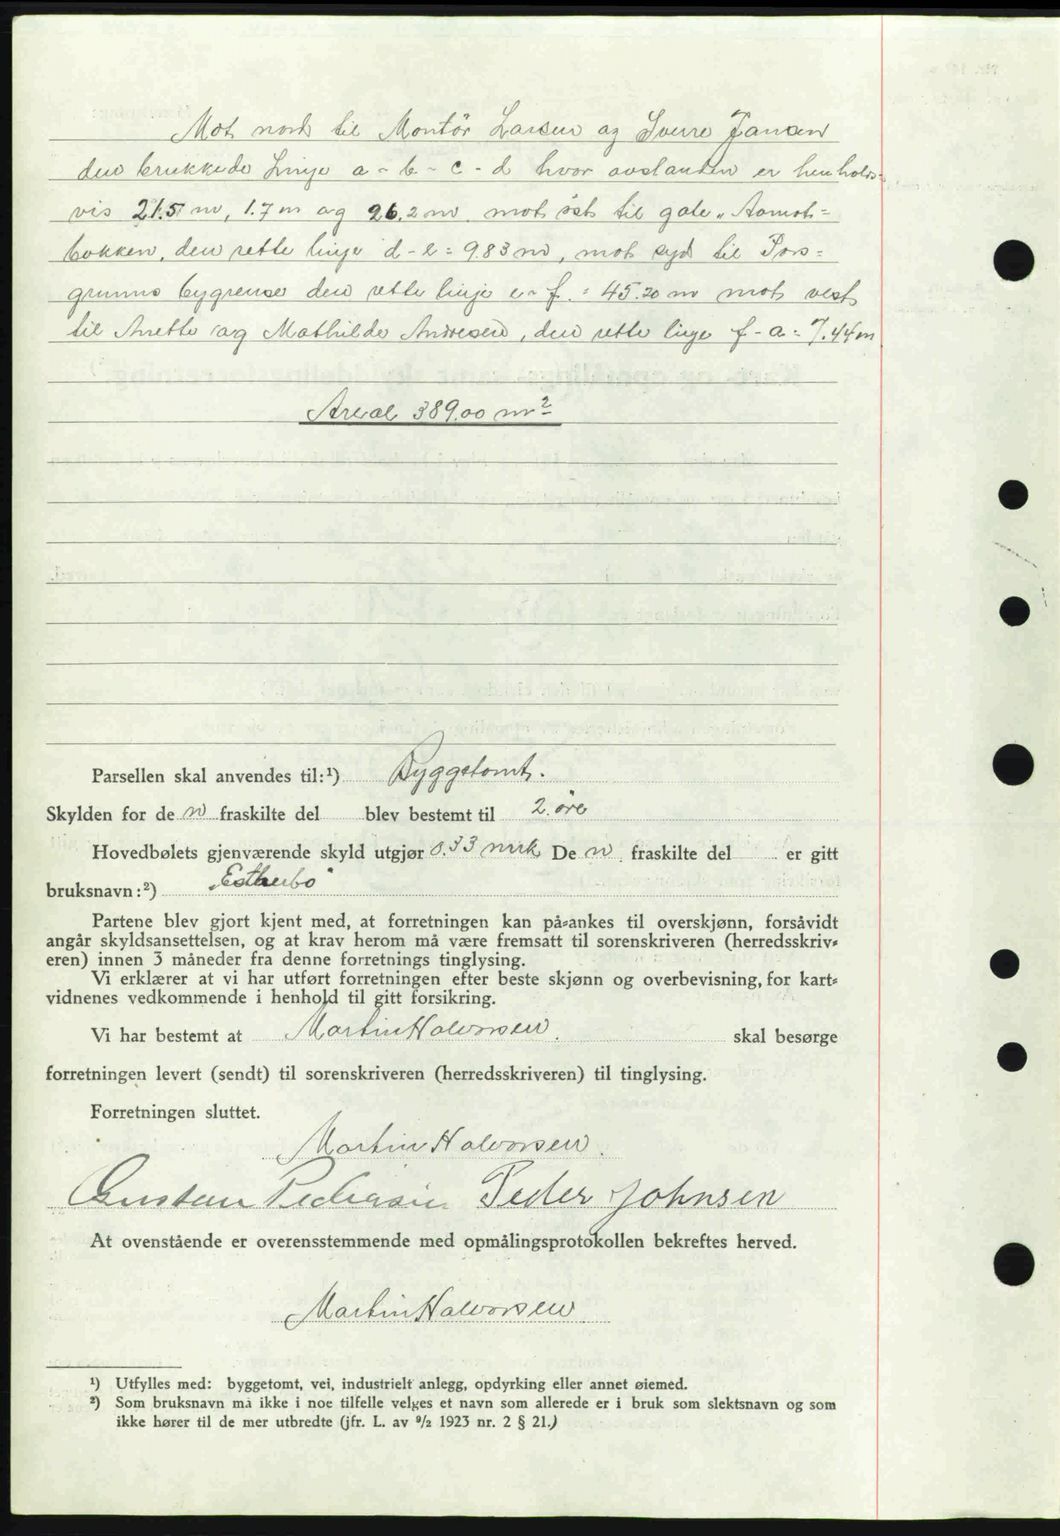 Mot nord til Montör Larsen og Sverre Jansen
den brukkede Linje a - b - c - d hvor avstanden er henholds-
vis 21.5 m, 1.7 m og 26.2 m. mot öst til gate „Aamot-
bakken, den rette linje d - e = 9.83 m, mot syd til Pors-
grunns bygrense den rette linje e - f. = 45.20 m mot vest
til Anette og Mathilde Andresen, den rette linje f - a = 7.44 m
Areal 389.00 m²
Parsellen skal anvendes til:¹) Byggetomt.
Skylden for de n fraskilte del blev bestemt til 2 øre
Hovedbølets gjenværende skyld utgjør 0.33 mrk De n fraskilte del er gitt
bruksnavn:²) „Estherbo"
Partene blev gjort kjent med, at forretningen kan på-ankes til overskjønn, forsåvidt
angår skyldsansettelsen, og at krav herom må være fremsatt til sorenskriveren (herredsskriv-
eren) innen 3 måneder fra denne forretnings tinglysing.
Vi erklærer at vi har utført forretningen efter beste skjønn og overbevisning, for kart-
vidnenes vedkommende i henhold til gitt forsikring.
Vi har bestemt at Martin Halvorsen. skal besørge
forretningen levert (sendt) til sorenskriveren (herredsskriveren) til tinglysing.
Forretningen sluttet.
Martin Halvorsen.
Gustav Pedersen Peder Johnsen
At ovenstående er overensstemmende med opmålingsprotokollen bekreftes herved.
Martin Halvorsen
¹) Utfylles med: byggetomt, vei, industrielt anlegg, opdyrking eller annet øiemed.
²) Som bruksnavn må ikke i noe tilfelle velges et navn som allerede er i bruk som slektsnavn og som
ikke hører til de mer utbredte (jfr. L. av ⁹/₂ 1923 nr. 2 § 21.)